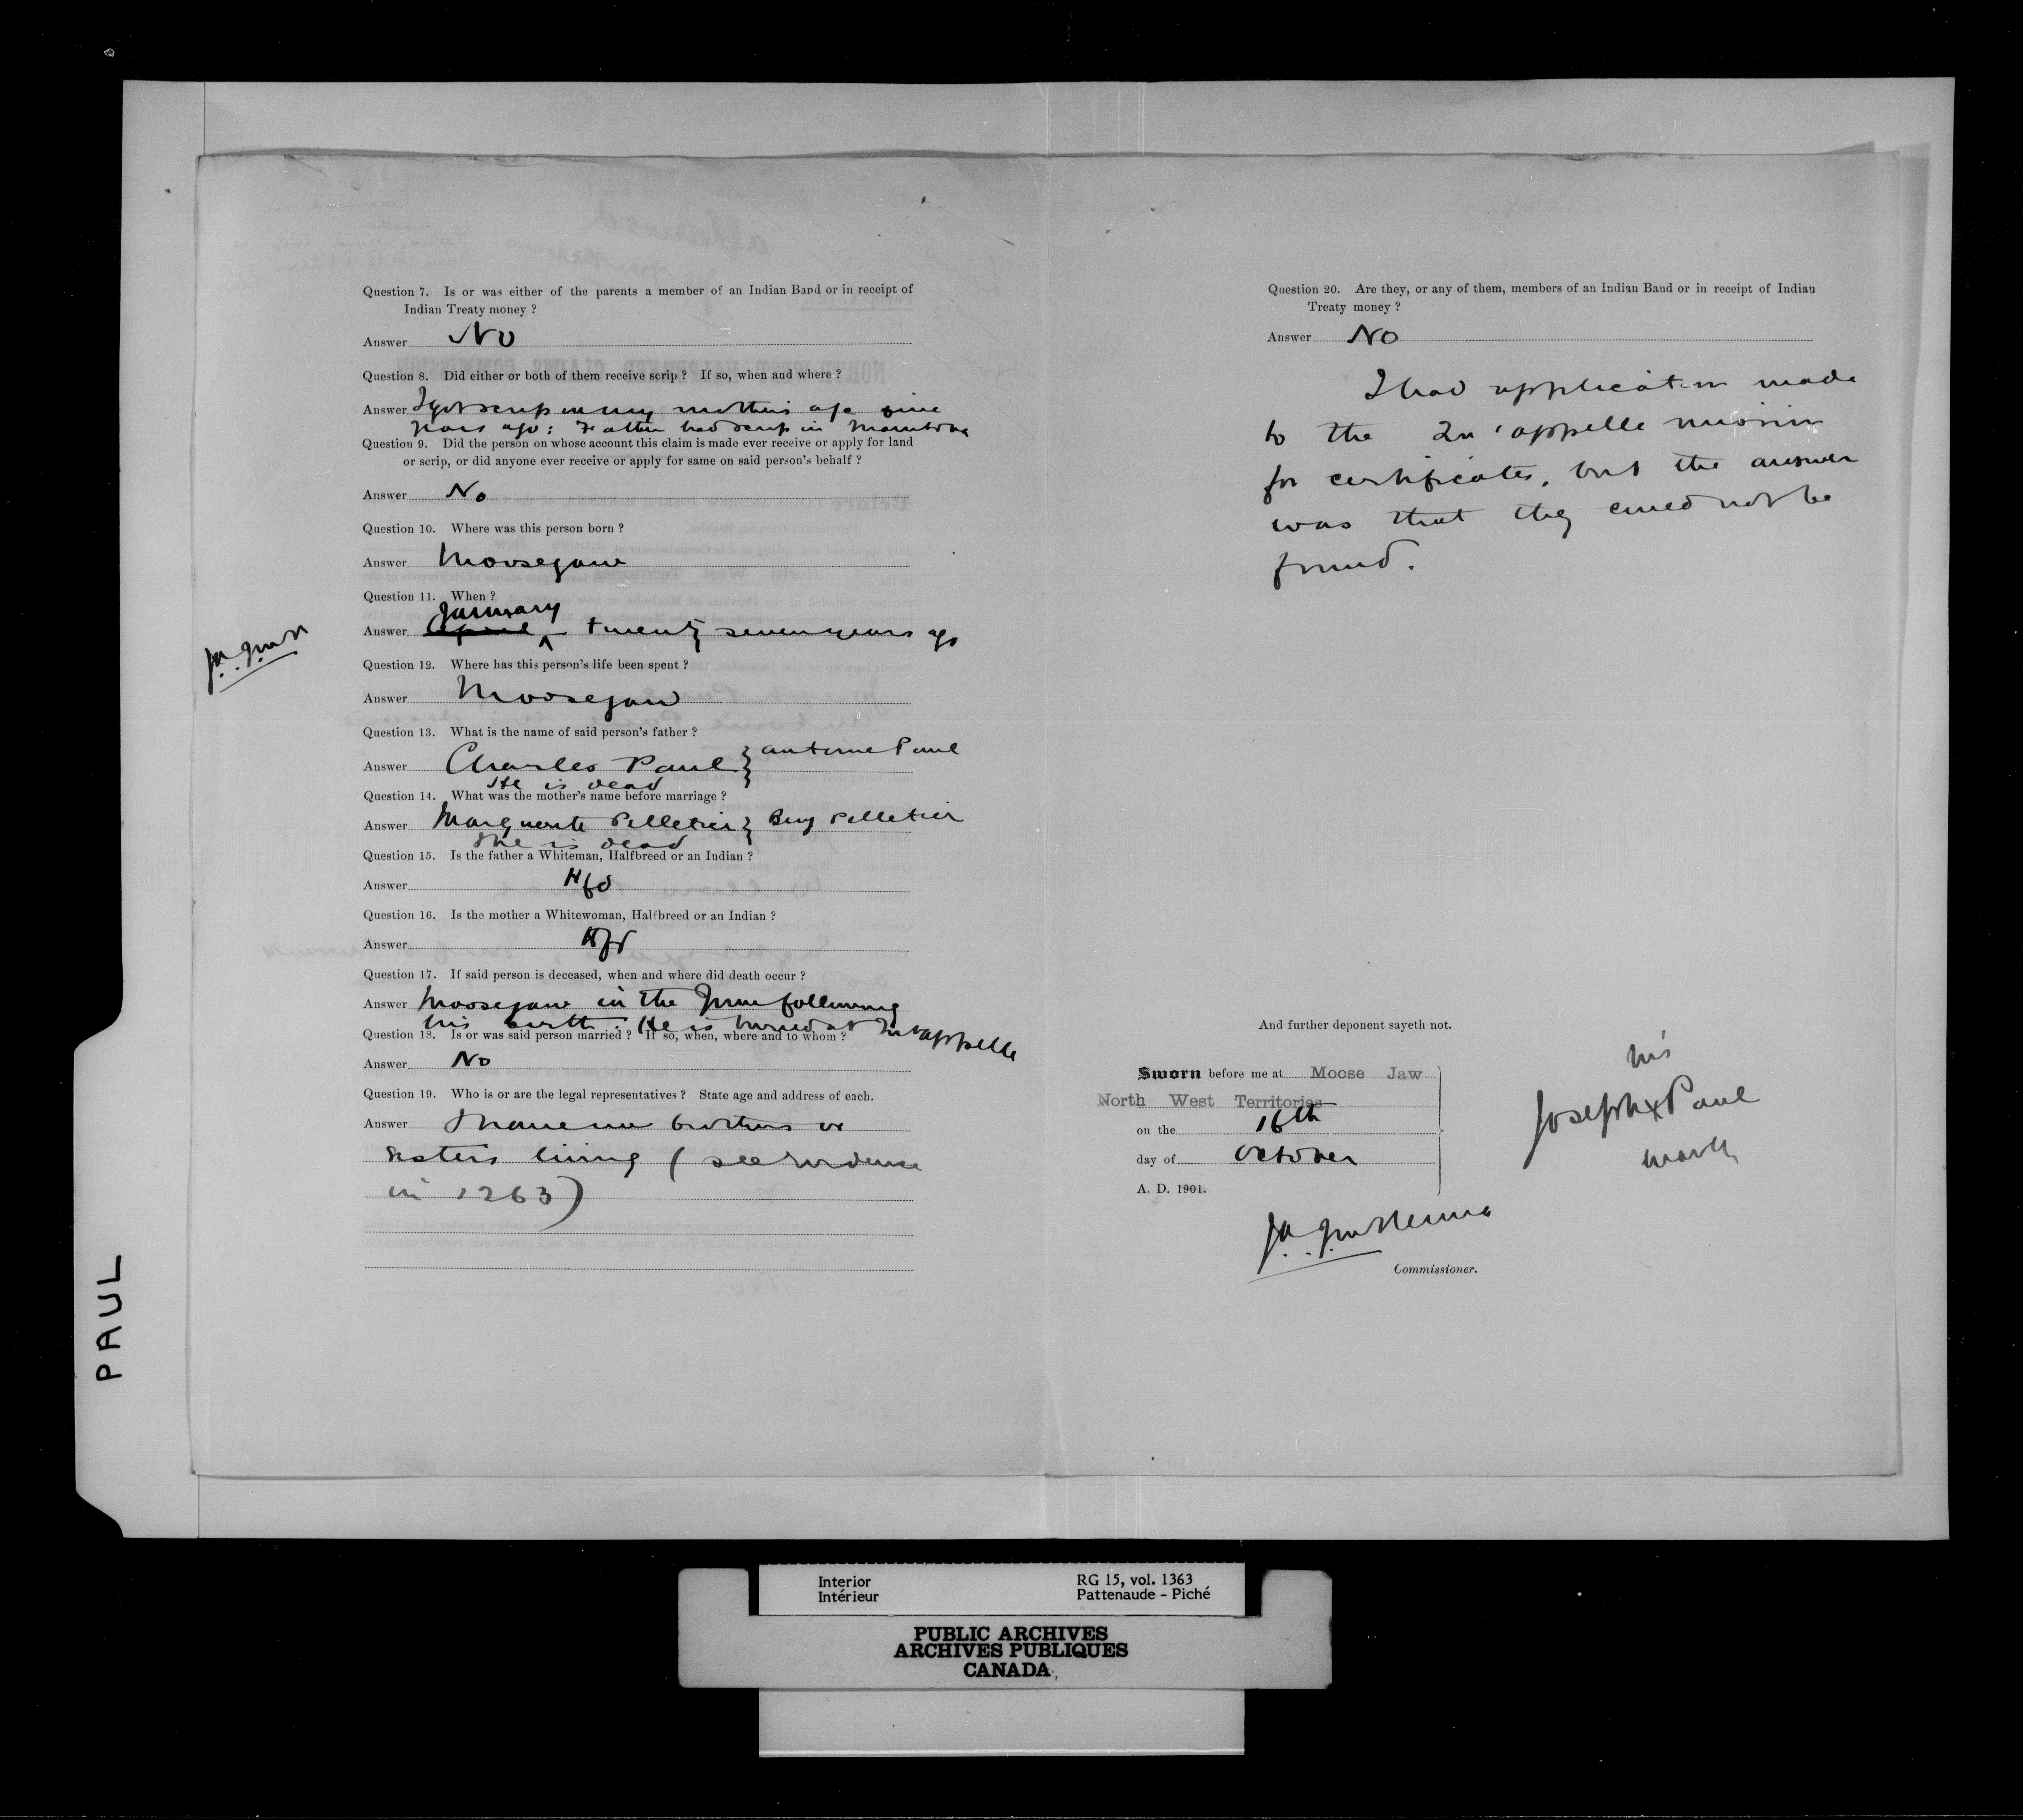 Question 7. Is or was either of the parents a member of an Indian Band or in receipt of
Indian Treaty money ?
Answer No
Question 8. Did either or both of them receive scrip ? If so, when and where ?
Answer I got scrip in my mothers age nine
years ago : Father had scrip in Manitoba
Question 9. Did the person on whose account this claim is made ever receive or apply for land
or scrip, or did anyone ever receive or apply for same on said person's behalf ?
Answer No
Question 10. Where was this person born ?
Answer Moosejaw
Question 11. When ?
January
Answer April ^ twenty seven years ago
Question 12. Where has this person's life been spent ?
Answer Moosejaw
Question 13. What is the name of said person's father ?
Answer Charles Paul } Antoine Paul
He is dead
Question 14. What was the mother's name before marriage ?
Answer Marguerite Pelletier } Benj Pelletier
She is dead
Question 15. Is the father a Whiteman, Halfbreed or an Indian ?
Answer Hfd
Question 16. Is the mother a Whitewoman, Halfbreed or an Indian ?
Answer Hfd
Question 17. If said person is deceased, when and where did death occur ?
Answer Moosejaw in the June following
his birth. He is buried at Qu'appelle
Question 18. Is or was said person married ? If so, when, where and to whom ?
Answer No
Question 19. Who is or are the legal representatives ? State age and address of each.
Answer I have no brothers or
sisters living (see evidence
in 1263)
Question 20. Are they, or any of them, members of an Indian Band or in receipt of Indian
Treaty money ?
Answer No
I had application made
to the Qu'appelle mission
for certificates, but the answer
was that they could not be
found.
And further deponent sayeth not.
Sworn before me at Moose Jaw
North West Territories
on the 16th
day of October
A. D. 1901.
his
Joseph x Paul
mark
Commissioner.
PAUL
Interior
Intérieur
RG 15, vol. 1363
Pattenaude - Piché
PUBLIC ARCHIVES
ARCHIVES PUBLIQUES
CANADA